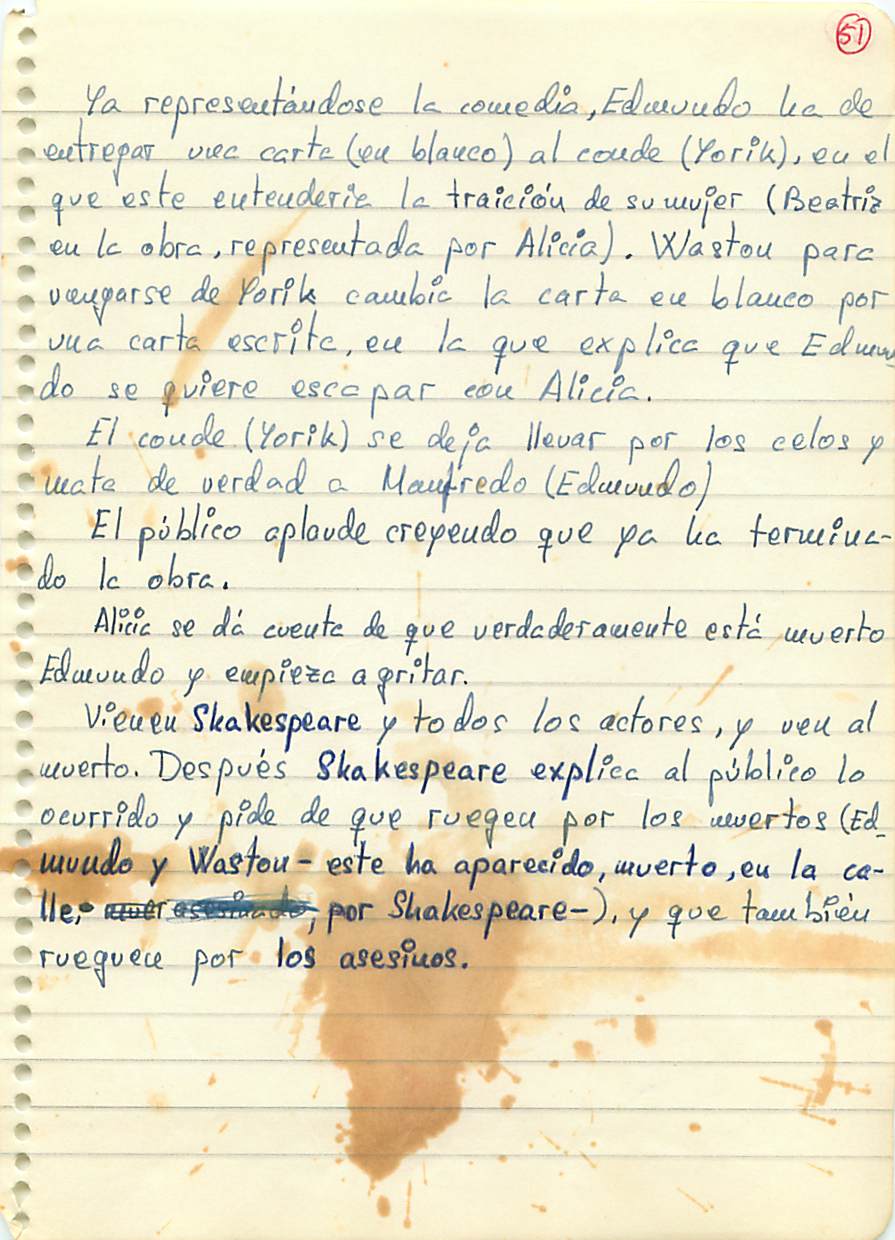 51
Ya representándose la comedia, Edmundo ha de
entregar una carta (en blanco) al conde (Yorik), en el
que este entendería la traición de su mujer (Beatriz
en la obra, representada por Alicia). Waston para
vengarse de Yorik cambia la carta en blanco por
una carta escrita, en la que explica que Edmun
do se quiere escapar con Alicia.
El conde (Yorik) se deja llevar por los celos y
mata de verdad a Manfredo (Edmundo)
El público aplaude creyendo que ya ha termina-
do la obra.
Alicia se dá cuenta de que verdaderamente está muerto
Edmundo y empieza a gritar.
Vienen Shakespeare y todos los actores, y ven al
muerto. Después Shakespeare explica al público lo
ocurrido y pide de que ruegen por los muertos (Ed_
mundo y Waston - este ha aparecido, muerto, en la ca-
lle, asesinado, por Shakespeare-), y que también
rueguen por los asesinos.